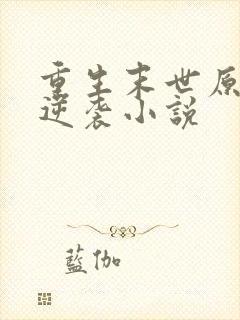 重生末世原
逆袭小説
藍伽